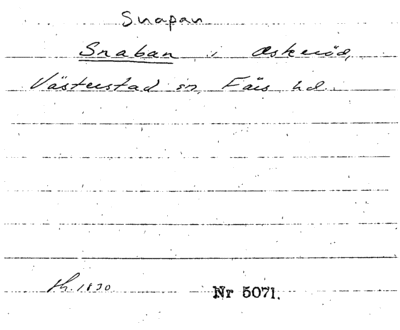 Snapan
Snaban i Askeröd,
Västerstad sn, Färs hd.
Nr 5071.